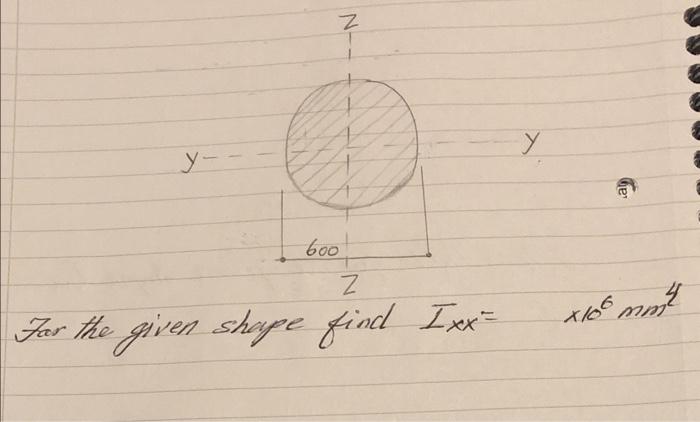 Z
y
y
600
Z
For the given shape find Ixx= x10⁶ mm⁴